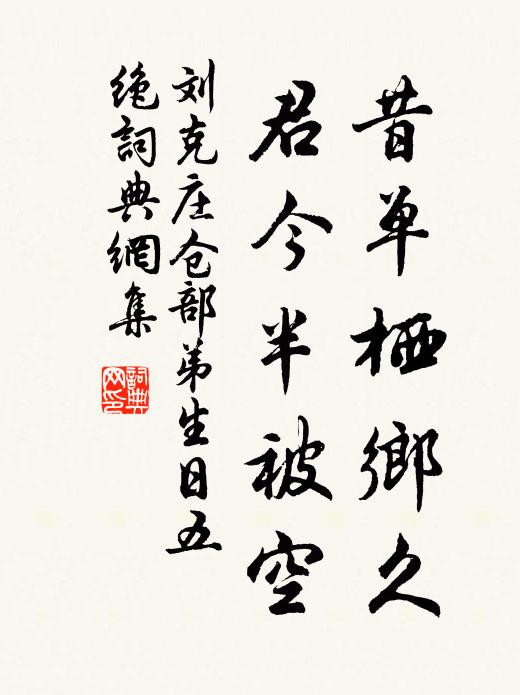 昔单栖鄉久
君今半被空
刘克庄仓部弟生日五
绝詞典網集
詞典
网印